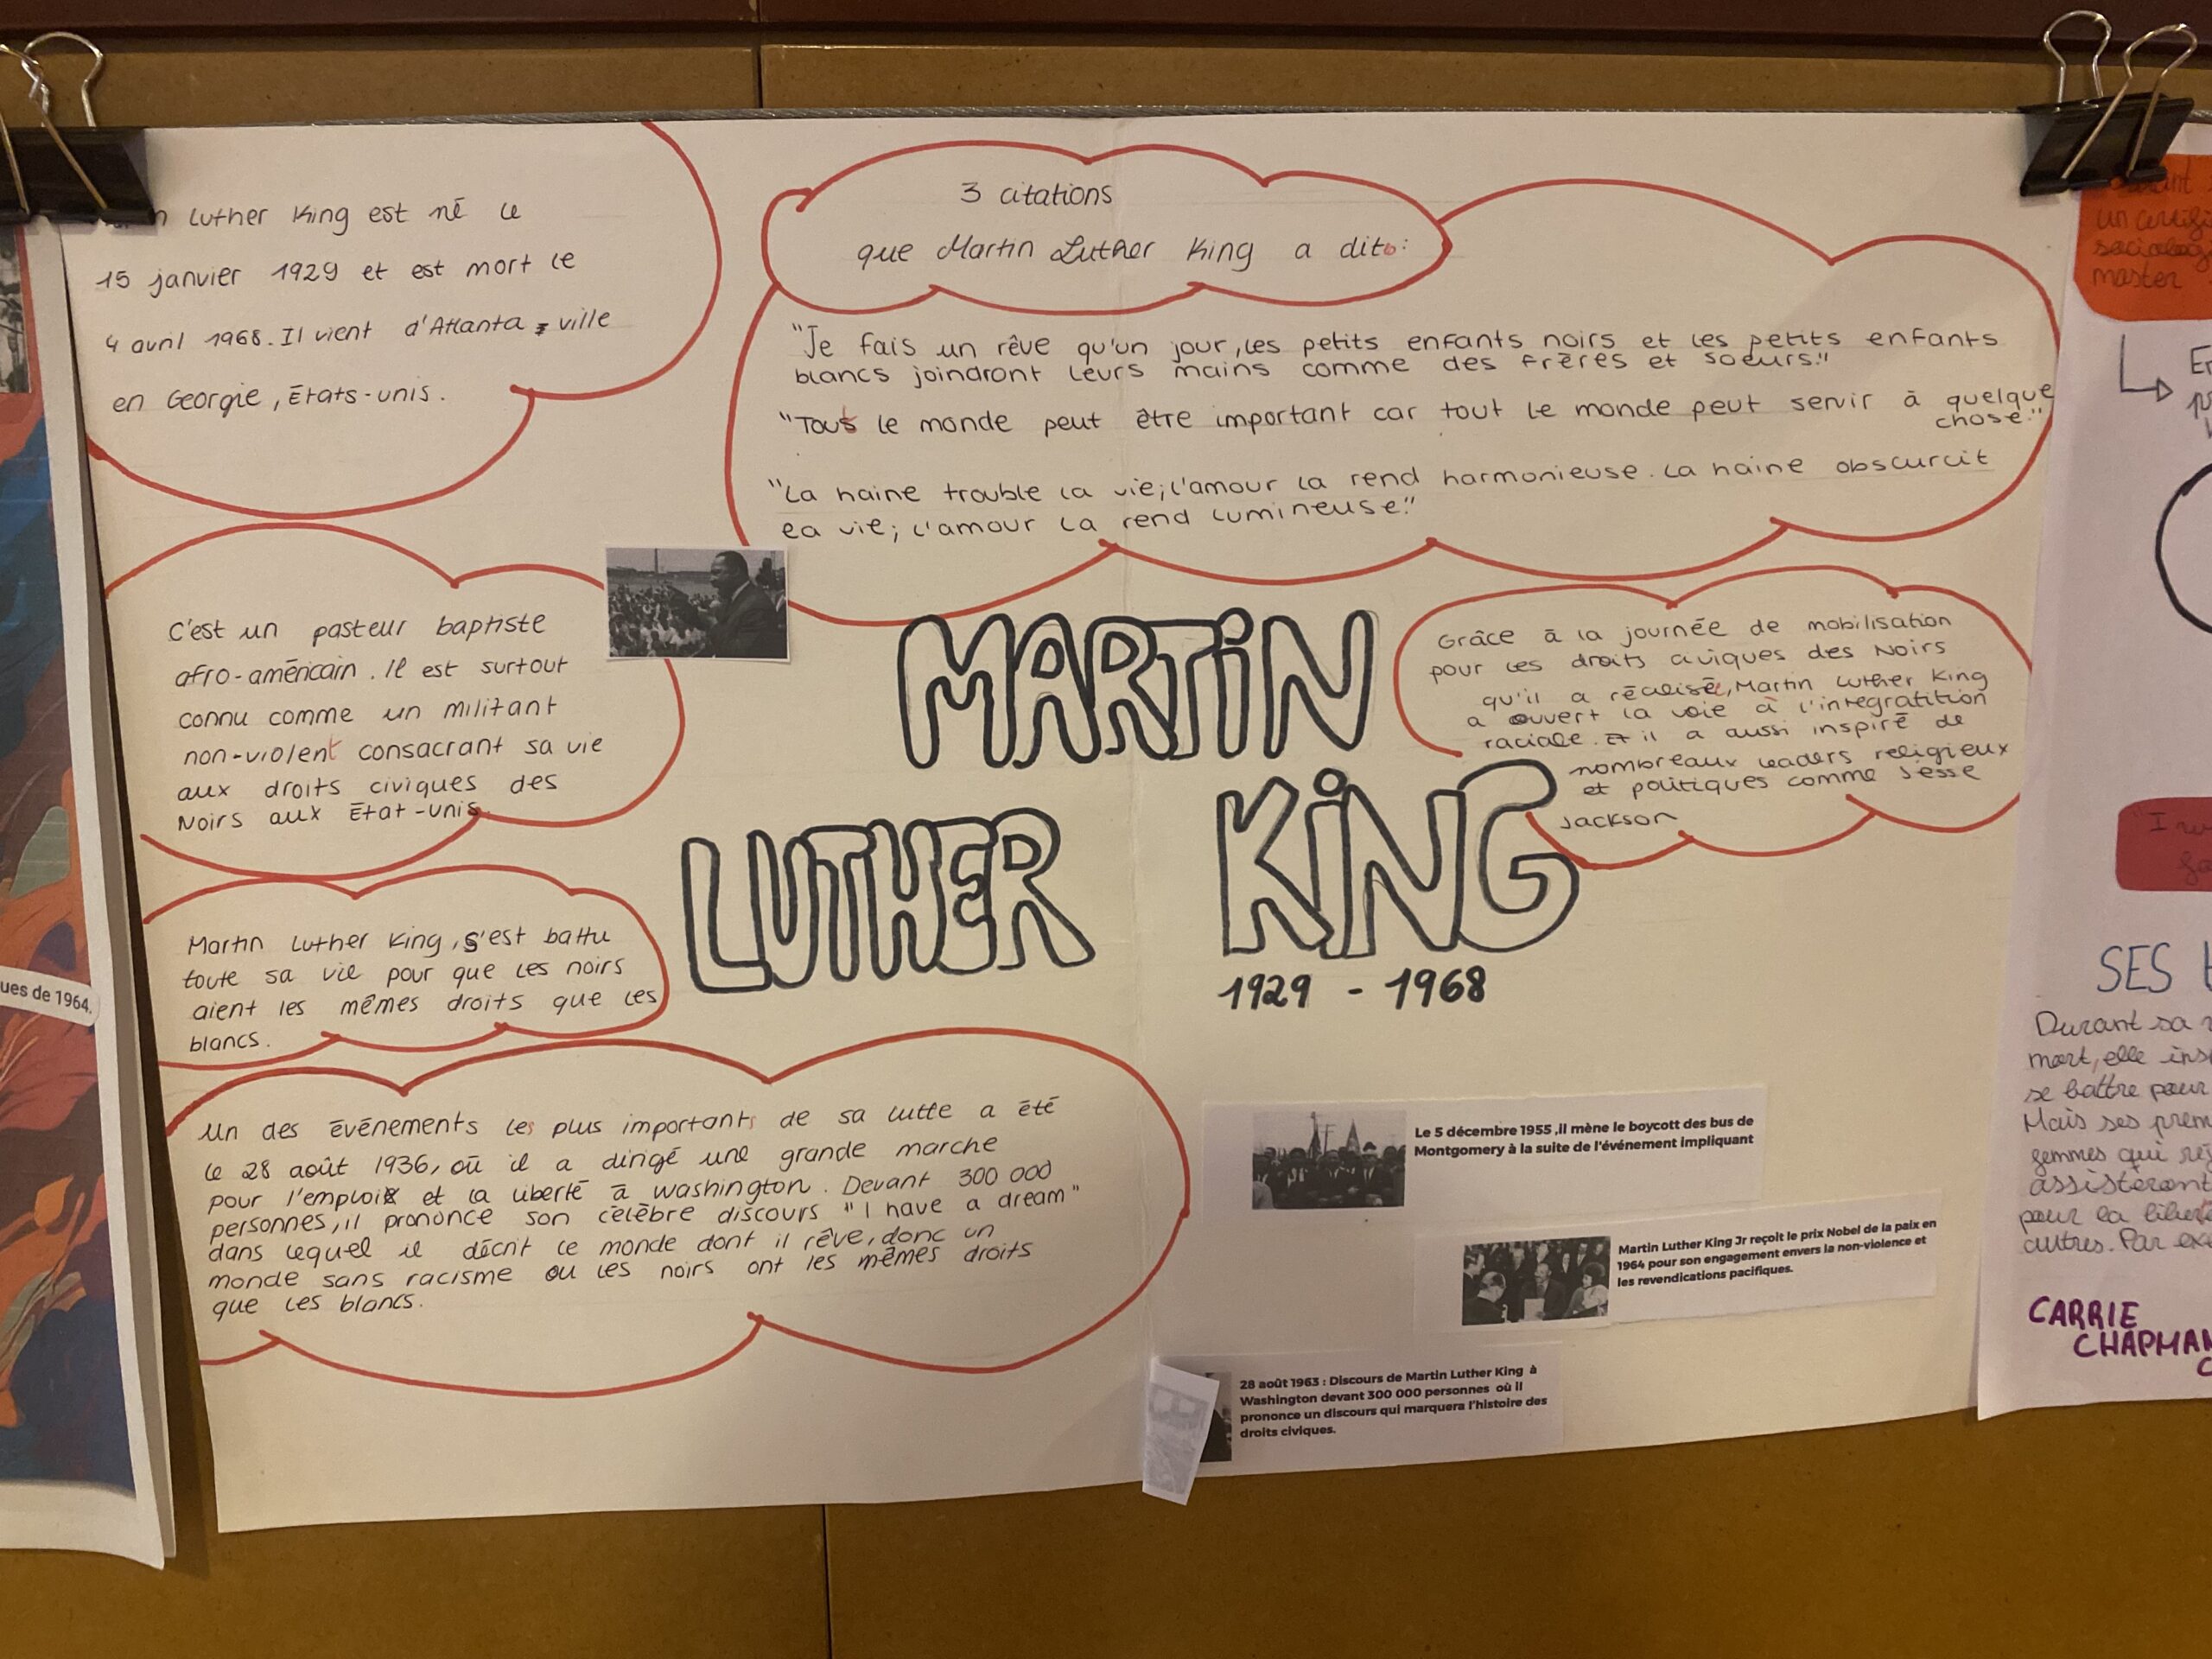 Luther King est né le
15 janvier 1929 et est mort le
4 avril 1968. Il vient d'Atlanta, ville
en Georgie, États-unis.
3 citations
que Martin Luther King a dit:
"Je fais un rêve qu'un jour, les petits enfants noirs et les petits enfants
blancs joindront leurs mains comme des frères et soeurs."
"Tout le monde peut être important car tout le monde peut servir à quelque
chose."
"La haine trouble la vie; l'amour la rend harmonieuse. La haine obscurcit
la vie; l'amour la rend lumineuse."
C'est un pasteur baptiste
afro-américain. Il est surtout
connu comme un militant
non-violent consacrant sa vie
aux droits civiques des
Noirs aux État-unis.
MARTiN
LUTHER
KiNG
1929 - 1968
Grâce à la journée de mobilisation
pour les droits civiques des Noirs
qu'il a réalisé, Martin Luther King
a ouvert la voie à l'intégratition
raciale. Et il a aussi inspiré de
nombreaux leaders religieux
et politiques comme Jesse
Jackson
Martin Luther King, s'est battu
toute sa vie pour que les noirs
aient les mêmes droits que les
blancs.
Un des événements les plus importants de sa lutte a été
le 28 août 1936, où il a dirigé une grande marche
pour l'emploi et la liberté à Washington. Devant 300 000
personnes, il prononce son célèbre discours "I have a dream"
dans lequel il décrit le monde dont il rêve, donc un
monde sans racisme ou les noirs ont les mêmes droits
que les blancs.
Le 5 décembre 1955 ,il mène le boycott des bus de
Montgomery à la suite de l'événement impliquant
Martin Luther King Jr reçoit le prix Nobel de la paix en
1964 pour son engagement envers la non-violence et
les revendications pacifiques.
28 août 1963 : Discours de Martin Luther King à
Washington devant 300 000 personnes où il
prononce un discours qui marquera l'histoire des
droits civiques.
ues de 1964.
un
master
"I
SES
Durant sa
mort, elle
se battre pour
Mais ses
femmes qui
assistèrent
pour la
autres. Par
CARRIE
CHAPMAN